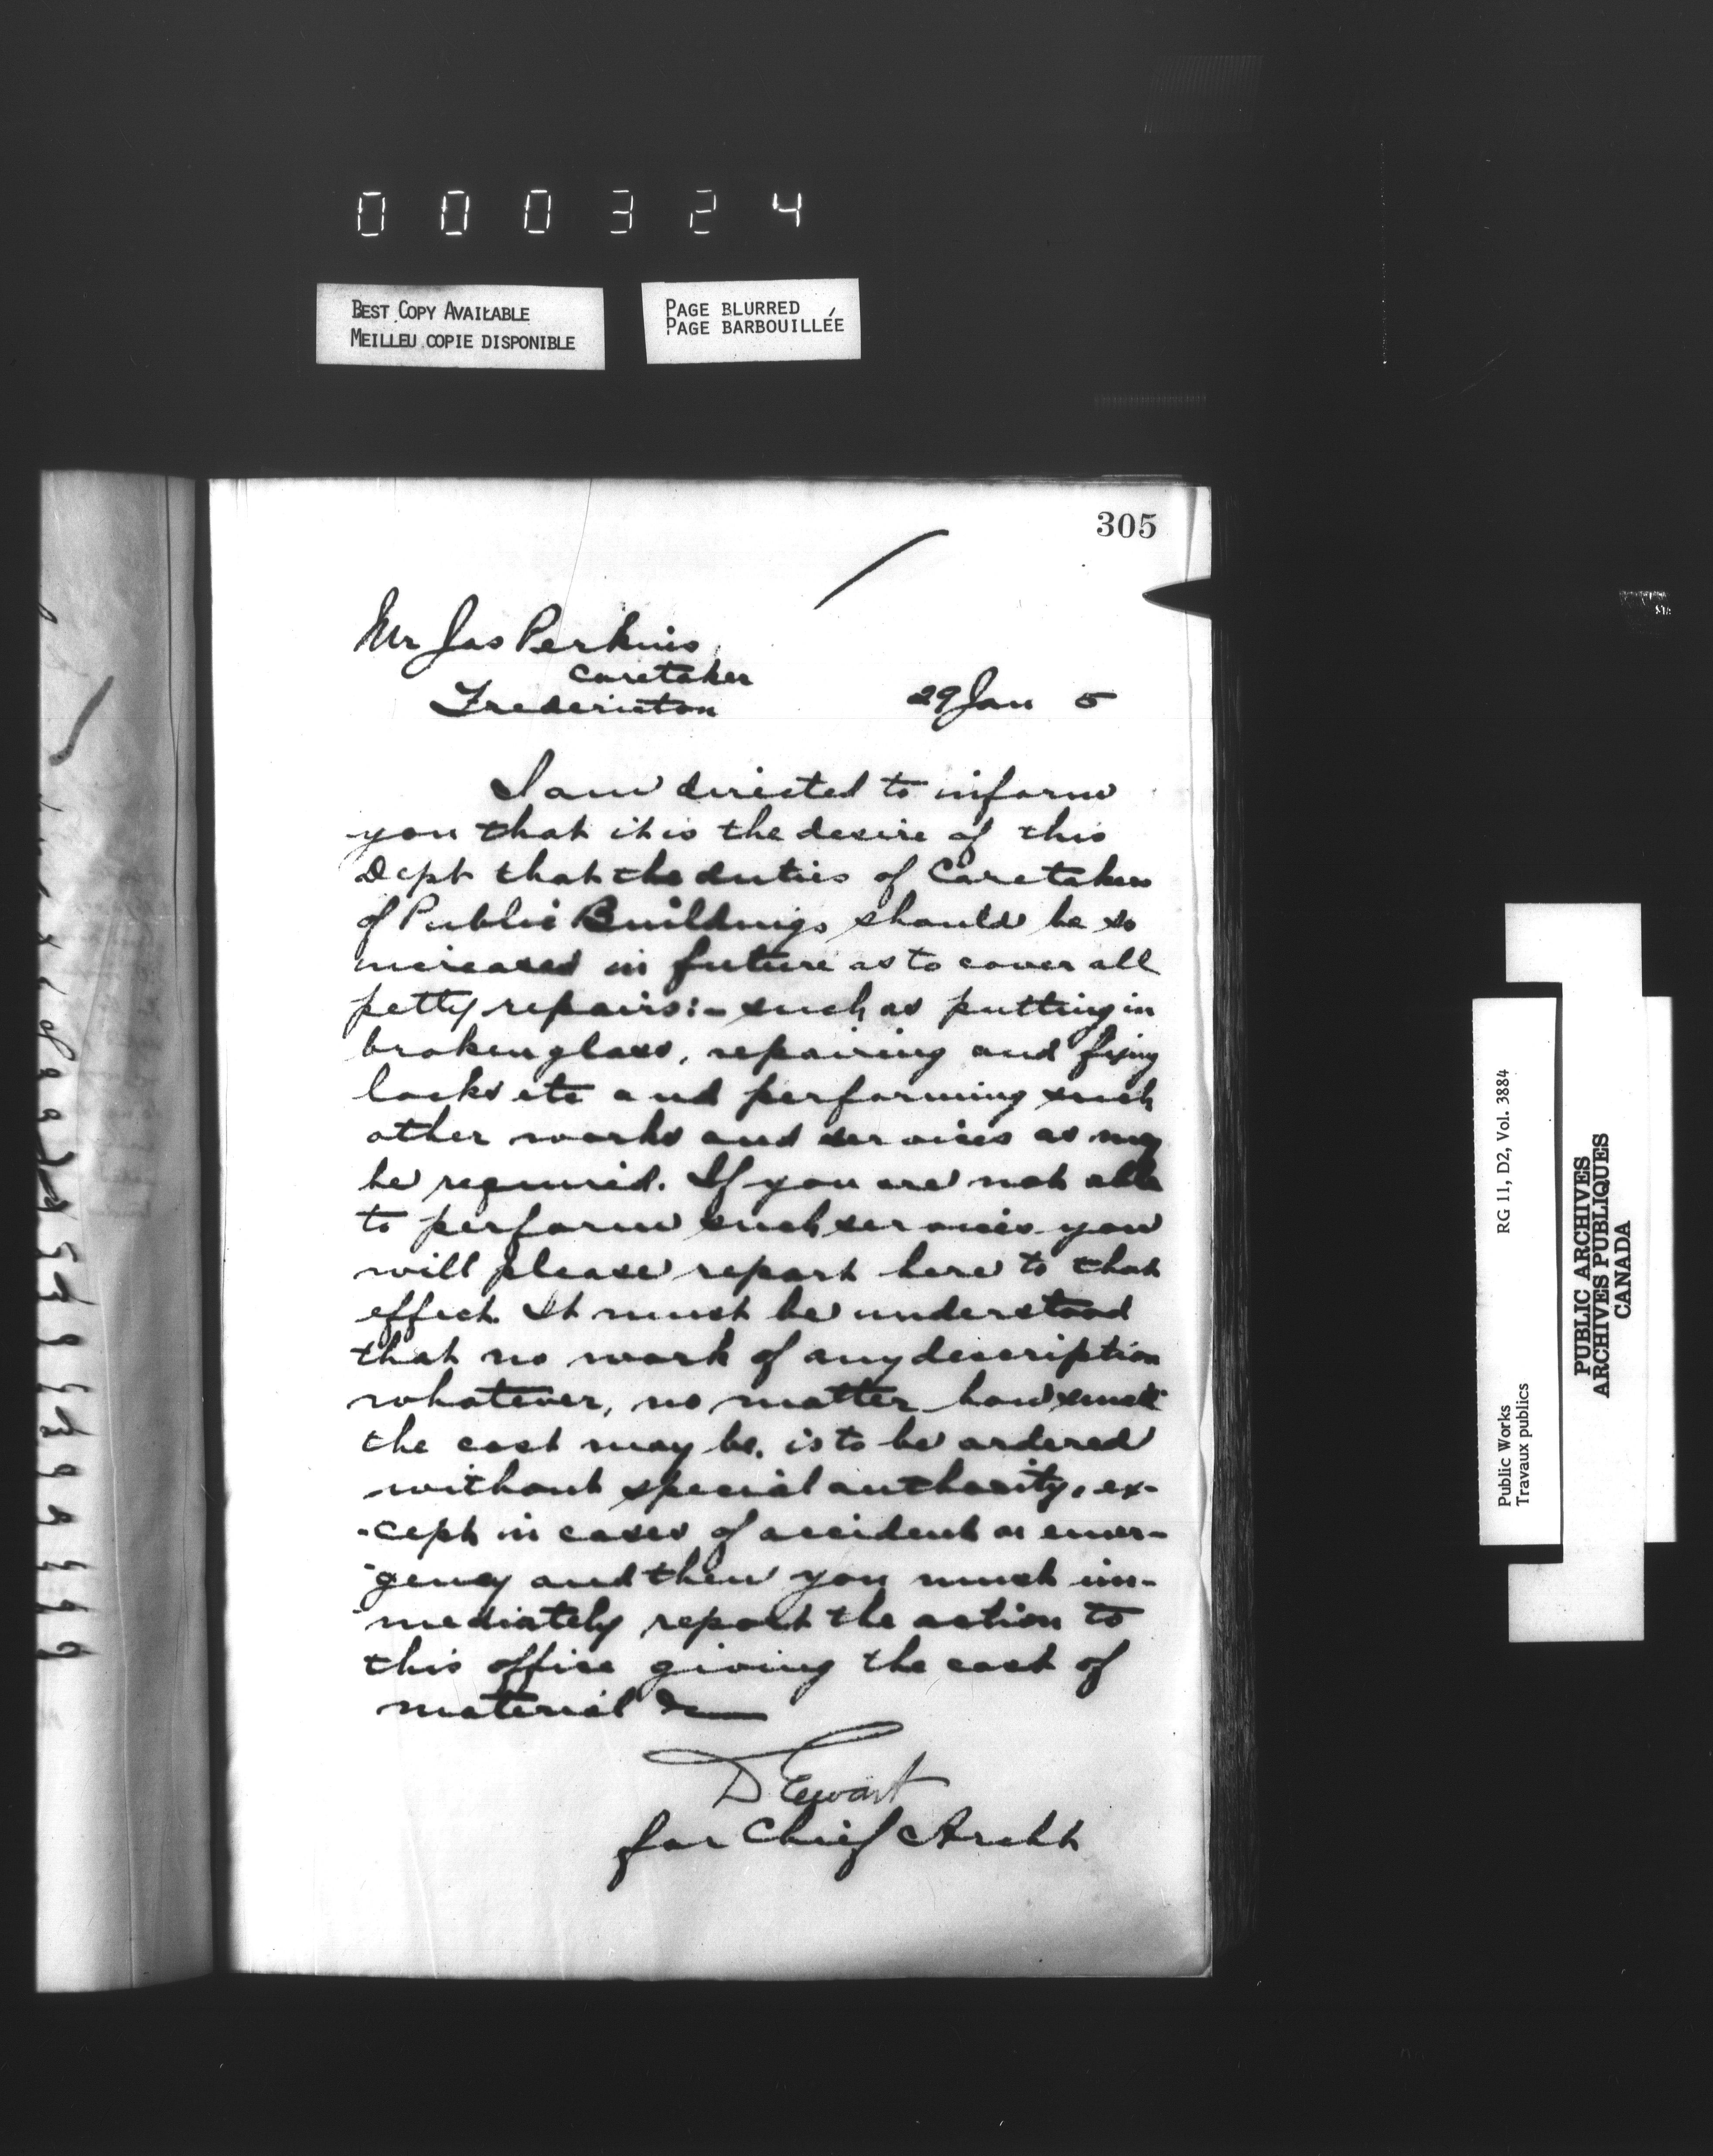 000324
BEST COPY AVAILABLE
MEILLEU COPIE DISPONIBLE
PAGE BLURRED
PAGE BARBOUILLÉE
305
Mr Jas Perkins,
Caretaker
Fredericton
29 Jan 5
I am directed to inform
you that it is the desire of this
Dept that the duties of Caretakers
of Public Buildings should be so
increased in future as to cover all
petty repairs:- such as putting in
broken glass, repairing and fixing
locks etc and performing such
other works and services as may
be required. If you are not able
to perform such services you
will please report here to that
effect. It must be understood
that no work of any description
whatever, no matter how small
the cost may be, is to be ordered
without special authority, ex-
-cept in cases of accident or emer-
-gency and then you must im-
-mediately report the action to
this office giving the cost of
material &c
D Ewart
for Chief Archt
Public Works
Travaux publics
RG 11, D2, Vol. 3884
PUBLIC ARCHIVES
ARCHIVES PUBLIQUES
CANADA